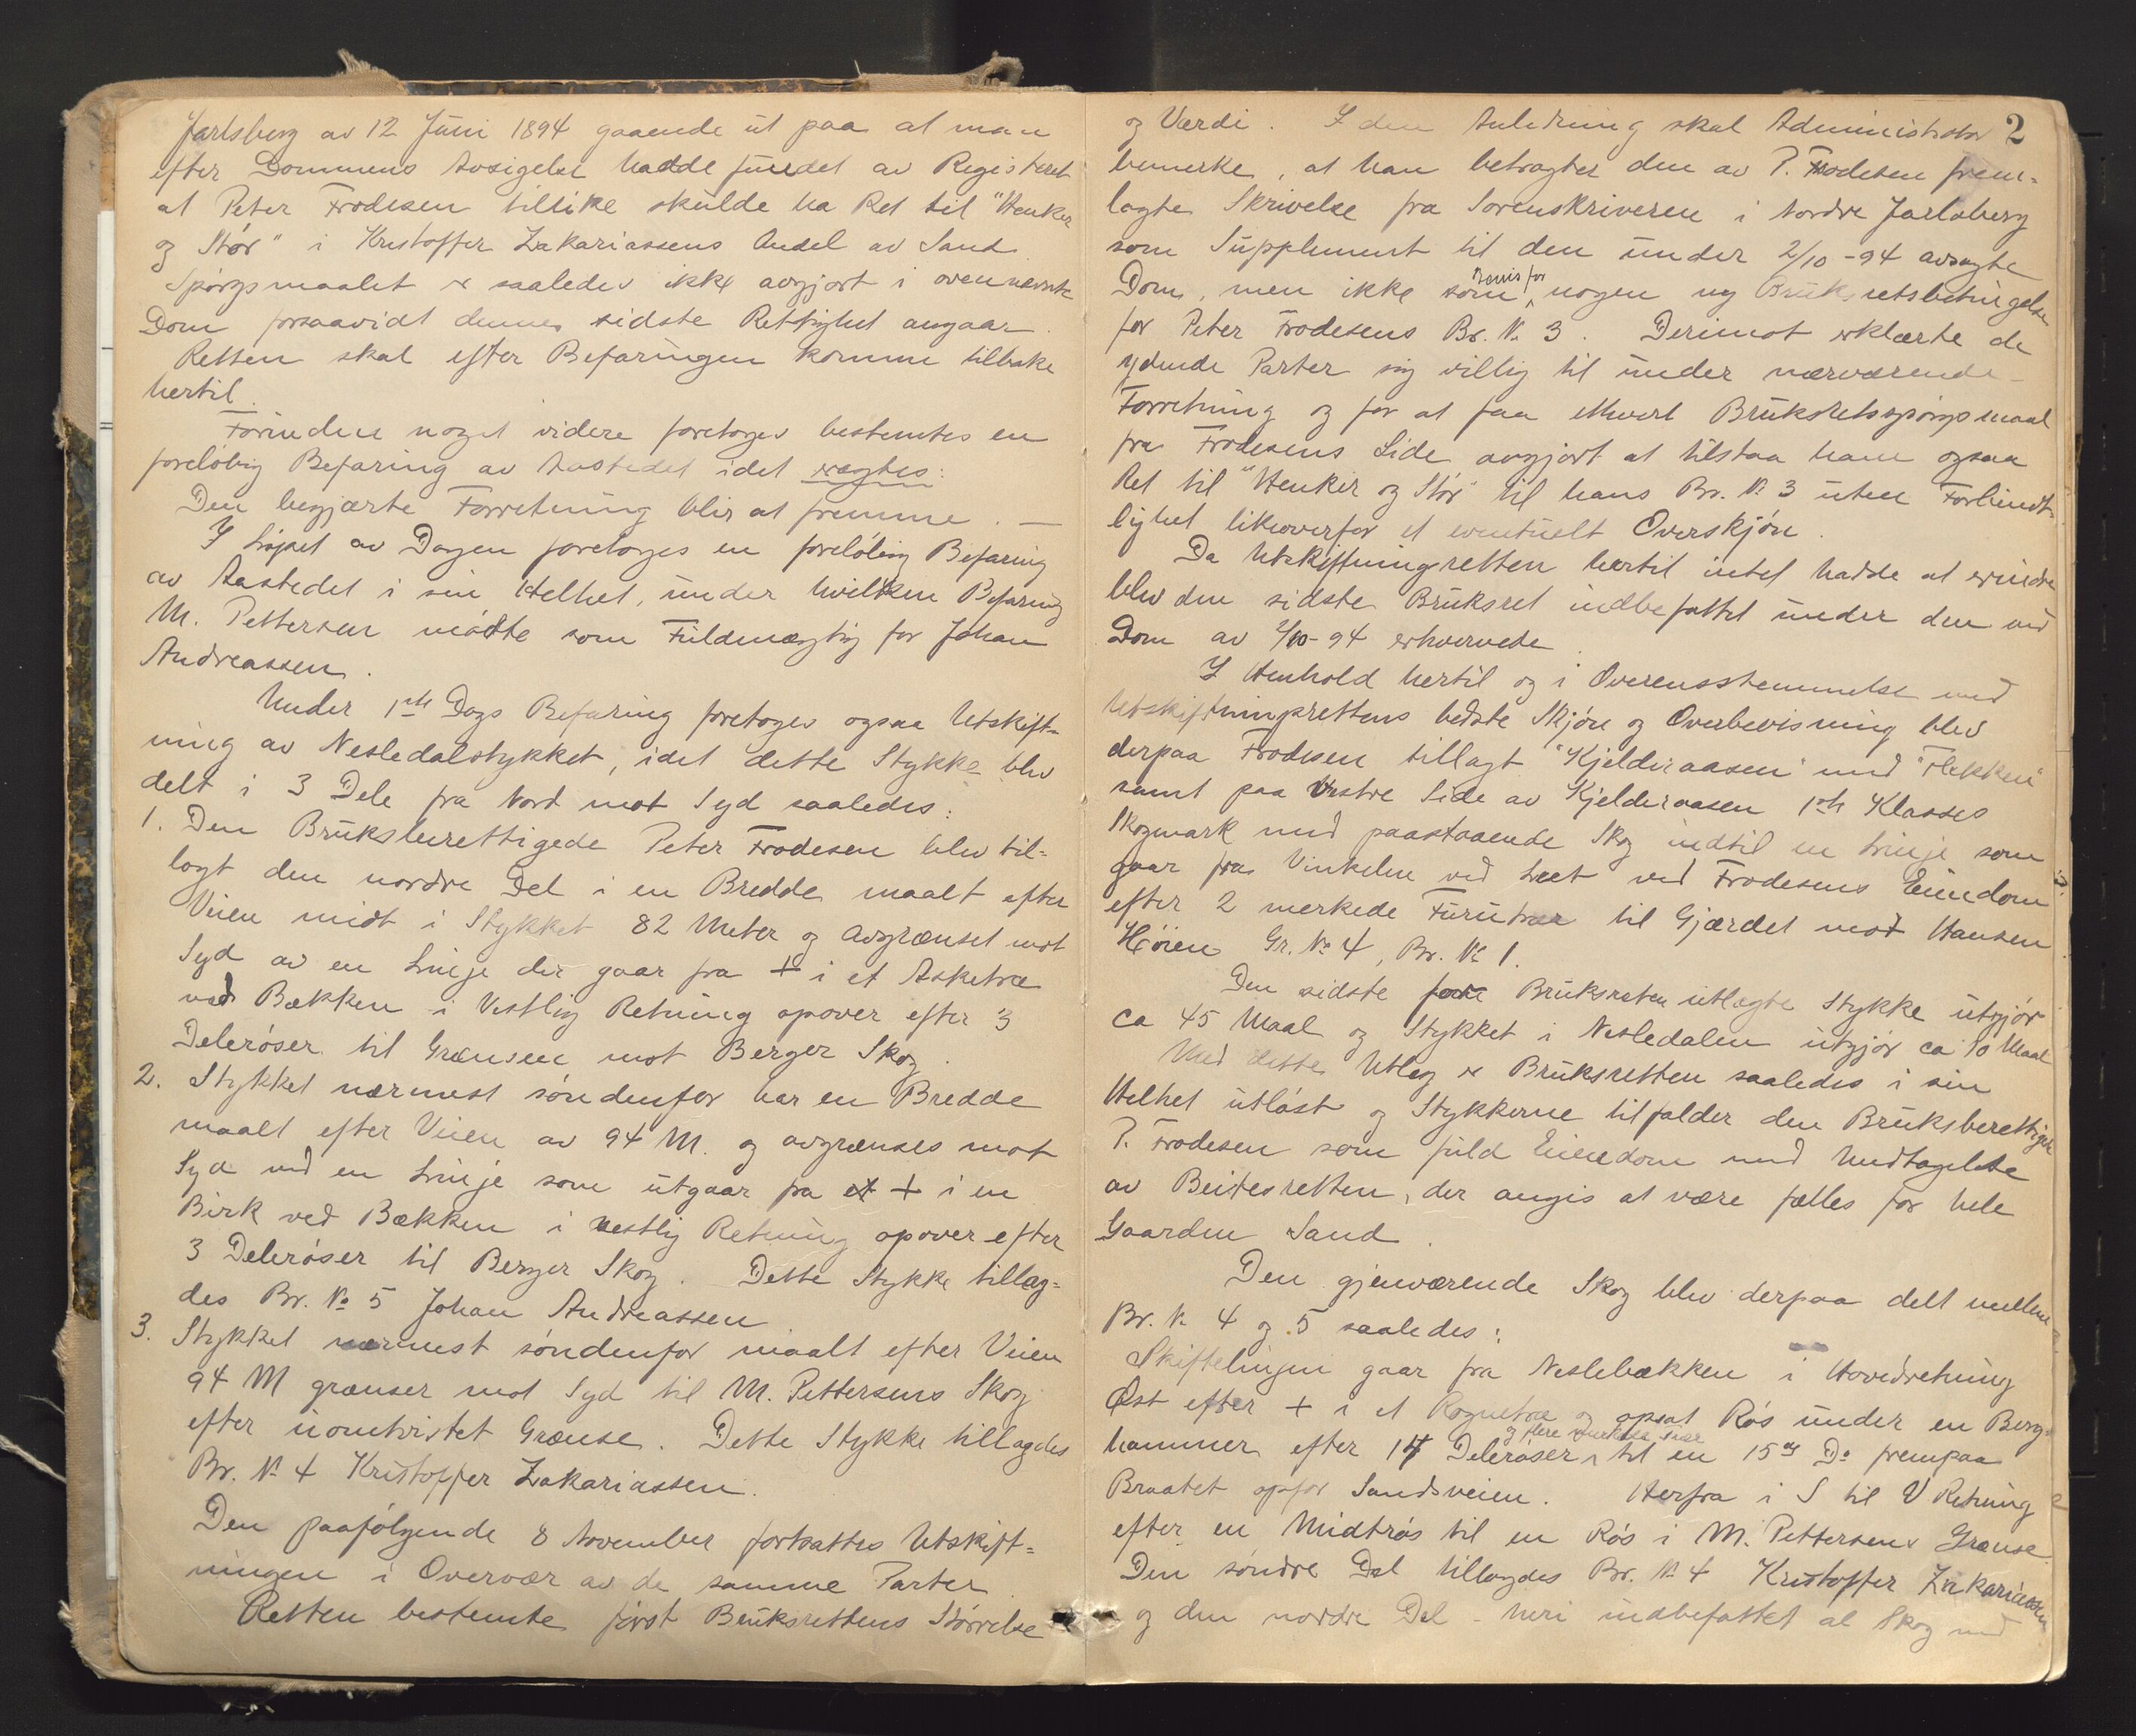 Jarlsberg av 12 Juni 1894 gaaende ut paa at man
efter Dommens Avsigelse hadde fundet av Registeret
at Peter Frodesen tillike skulde ha Ret til "Henker
og Stör" i Kristoffer Zakariassens Andel av Sand
Spörgsmaalet er saaledes ikke avgjort i ovennævnte
Dom forsaavidt denne sidste Rettighet angaar.
Retten skal efter Befaringen komme tilbake
hertil.
Forinden noget videre foretoges bestemtes en
forelöbig Befaring av Aastedet idet eragtes:
Den begjærte Forretning blir at fremme. —
I Löpet av Dagen foretoges en forelöbig Befaring
av Aastedet i sin Helhet, under hvilken Befaring
M. Pettersen mödte som Fuldmægtig for Johan
Andreassen.
Under 1ste Dags Befaring foretoges ogsaa Utskift-
ning av Nesledalstykket, idet dette Stykke blev
delt i 3 Dele fra Nord mot Syd saaledes:
1. Den Bruksberettigede Peter Frodesen blev til-
lagt den nordre Del i en Bredde maalt efter
Veien midt i Stykket 82 Meter og avgrænset mot
Syd av en Linje der gaar fra + i et Asketræ
ved Bækken i Vestlig Retning opover efter 3
Deleröser til Grænsen mot Berger Skog.
2. Stykket nærmest söndenfor har en Bredde
maalt efter Veien av 94 M. og avgrænses mot
Syd ved en Linje som utgaar fra et + i en
Birk ved Bækken i Vestlig Retning opover efter
3 Deleröser til Berger Skog. Dette Stykke tillag-
des Br. No 5 Johan Andreassen
3. Stykket nærmest söndenfor maalt efter Veien
94 M grænser mot Syd til M. Pettersens Skog
efter uomtvistet Grænse. Dette Stykke tillagdes
Br. No 4 Kristoffer Zakariassen.
Den paafölgende 8 November fortsattes Utskift-
ningen i Overvær av de samme Parter.
Retten bestemte först Bruksrettens Störrelse
2
og Værdi. I den Anledning skal Administrator
bemerke, at han betragter den av P. Frodesen frem-
lagte Skrivelse fra Sorenskriveren i Nordre Jarlsberg
som Supplement til den under 2/10-94 avsagte
Dom, men ikke som Bevis for nogen ny Bruksretsbetingelse
for Peter Frodesens Br. No 3. Derimot erklærte de
ydende Parter sig villig til under nærværende
Forretning og for at faa ethvert Bruksretsspörgsmaal
fra Frodesens Side avgjort at tilstaa ham ogsaa
Ret til "Henker og Stör" til hans Br. No 3 uten Forbindt-
lighet likeoverfor et eventuelt Overskjön.
Da Utskiftningsretten hertil intet hadde at erindre
blev den sidste Bruksret indbefattet under den ved
Dom av 2/10-94 erhvervede
I Henhold hertil og i Overensstemmelse med
Utskiftningsrettens bedste Skjön og Overbevisning blev
derpaa Frodesen tillagt "Kjelderaasen" med "Flekken"
samt paa Vestre Side av Kjelderaasen 1ste Klasses
Skogmark med paastaaende Skog indtil en Linje som
gaar fra Vinkelen ved Leet ved Frodesens Eiendom
efter 2 merkede Furutrær til Gjærdet mot Hansen
Höien Gr. No 4, Br. No 1.
Den sidste for Bruksreten utlagte Stykke utgjör
ca 45 Maal og Stykket i Nesledalen utgjör ca 10 Maal
Med dette Utlæg er Bruksretten saaledes i sin
Helhet utlöst og Stykkerne tilfalder den Bruksberettigede
P. Frodesen som fuld Eiendom med Undtagelse
av Beitesretten, der angis at være fælles for hele
Gaarden Sand.
Den gjenværende Skog blev derpaa delt mellem
Br. No 4 og 5 saaledes:
Skiftelinjen gaar fra Neslebækken i Hovedretning
Öst efter + i et Rognetræ og opsat Rös under en Berg-
hammer efter 14 Deleröser og flere merkede Trær til en 15de Do frempaa
Braatet opfor Sandsveien. Herfra i S til V Retning
efter en Midtrös til en Rös i M. Pettersens Grænse.
Den söndre Del tillagdes Br. No 4 Kristoffer Zakariassen
og den nordre Del - heri indbefattet al Skog ved